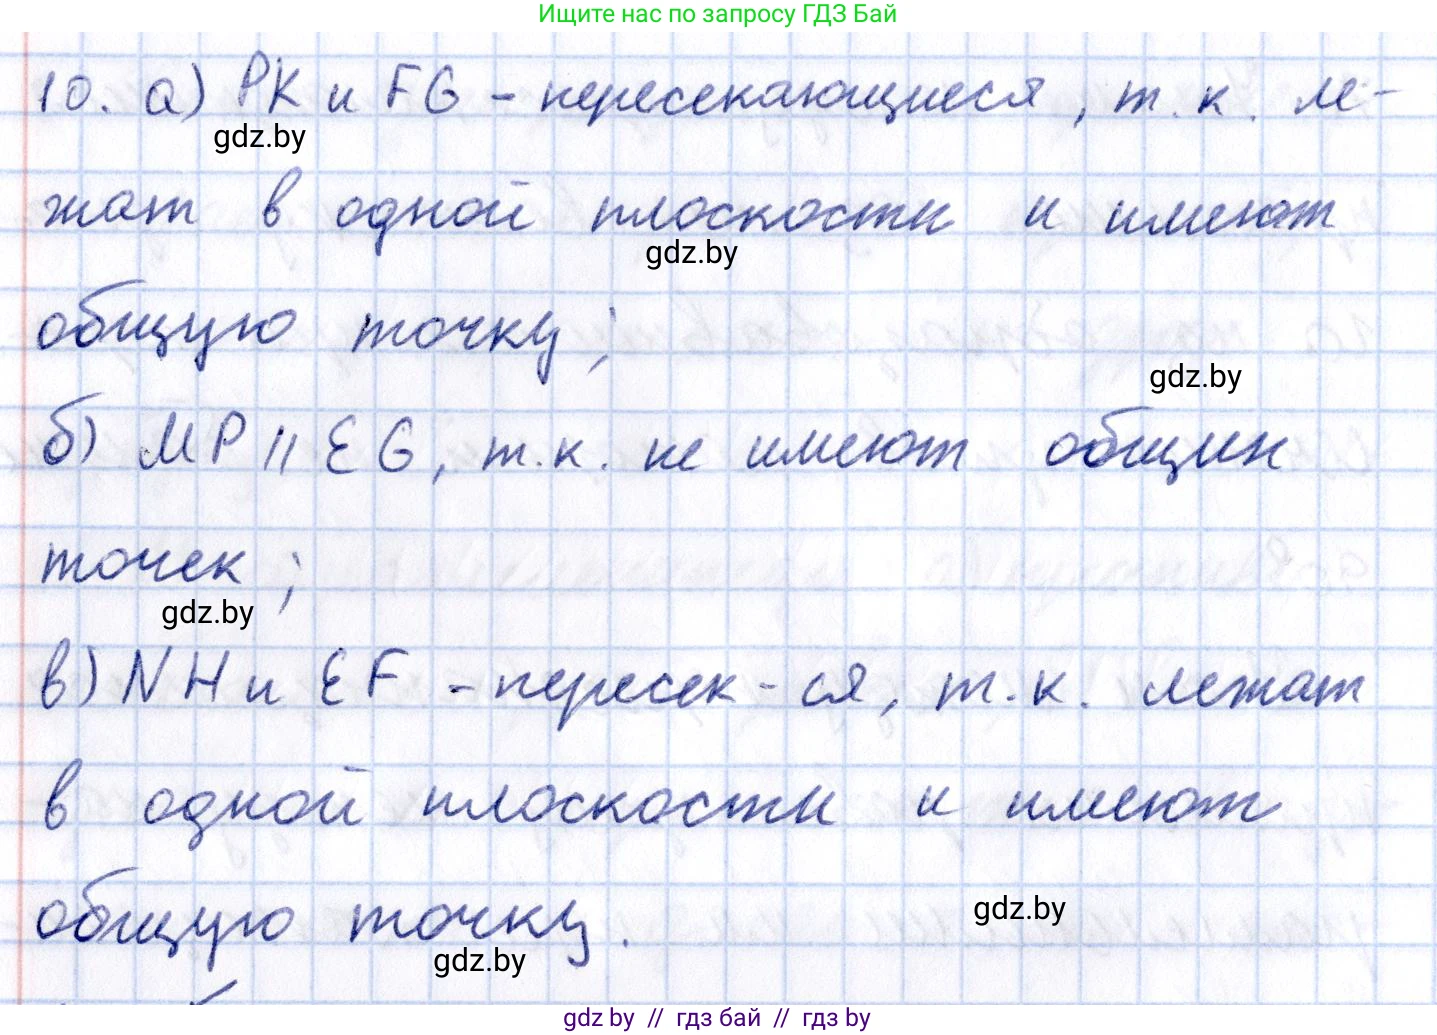 Ищите нас по запросу ГДЗ Бай
10. а) PK и FG - пересекающиеся, т.к. ле-
gdz.by
жат в одной плоскости и имеют
gdz.by
общую точку;
gdz.by
б) MP || EG, т.к. не имеют общих
точек;
gdz.by
в) NH и EF - пересек-ся, т.к. лежат
в одной плоскости и имеют
общую точку.
gdz.by
gdz.by
gdz.by // гдз бай // гдз by